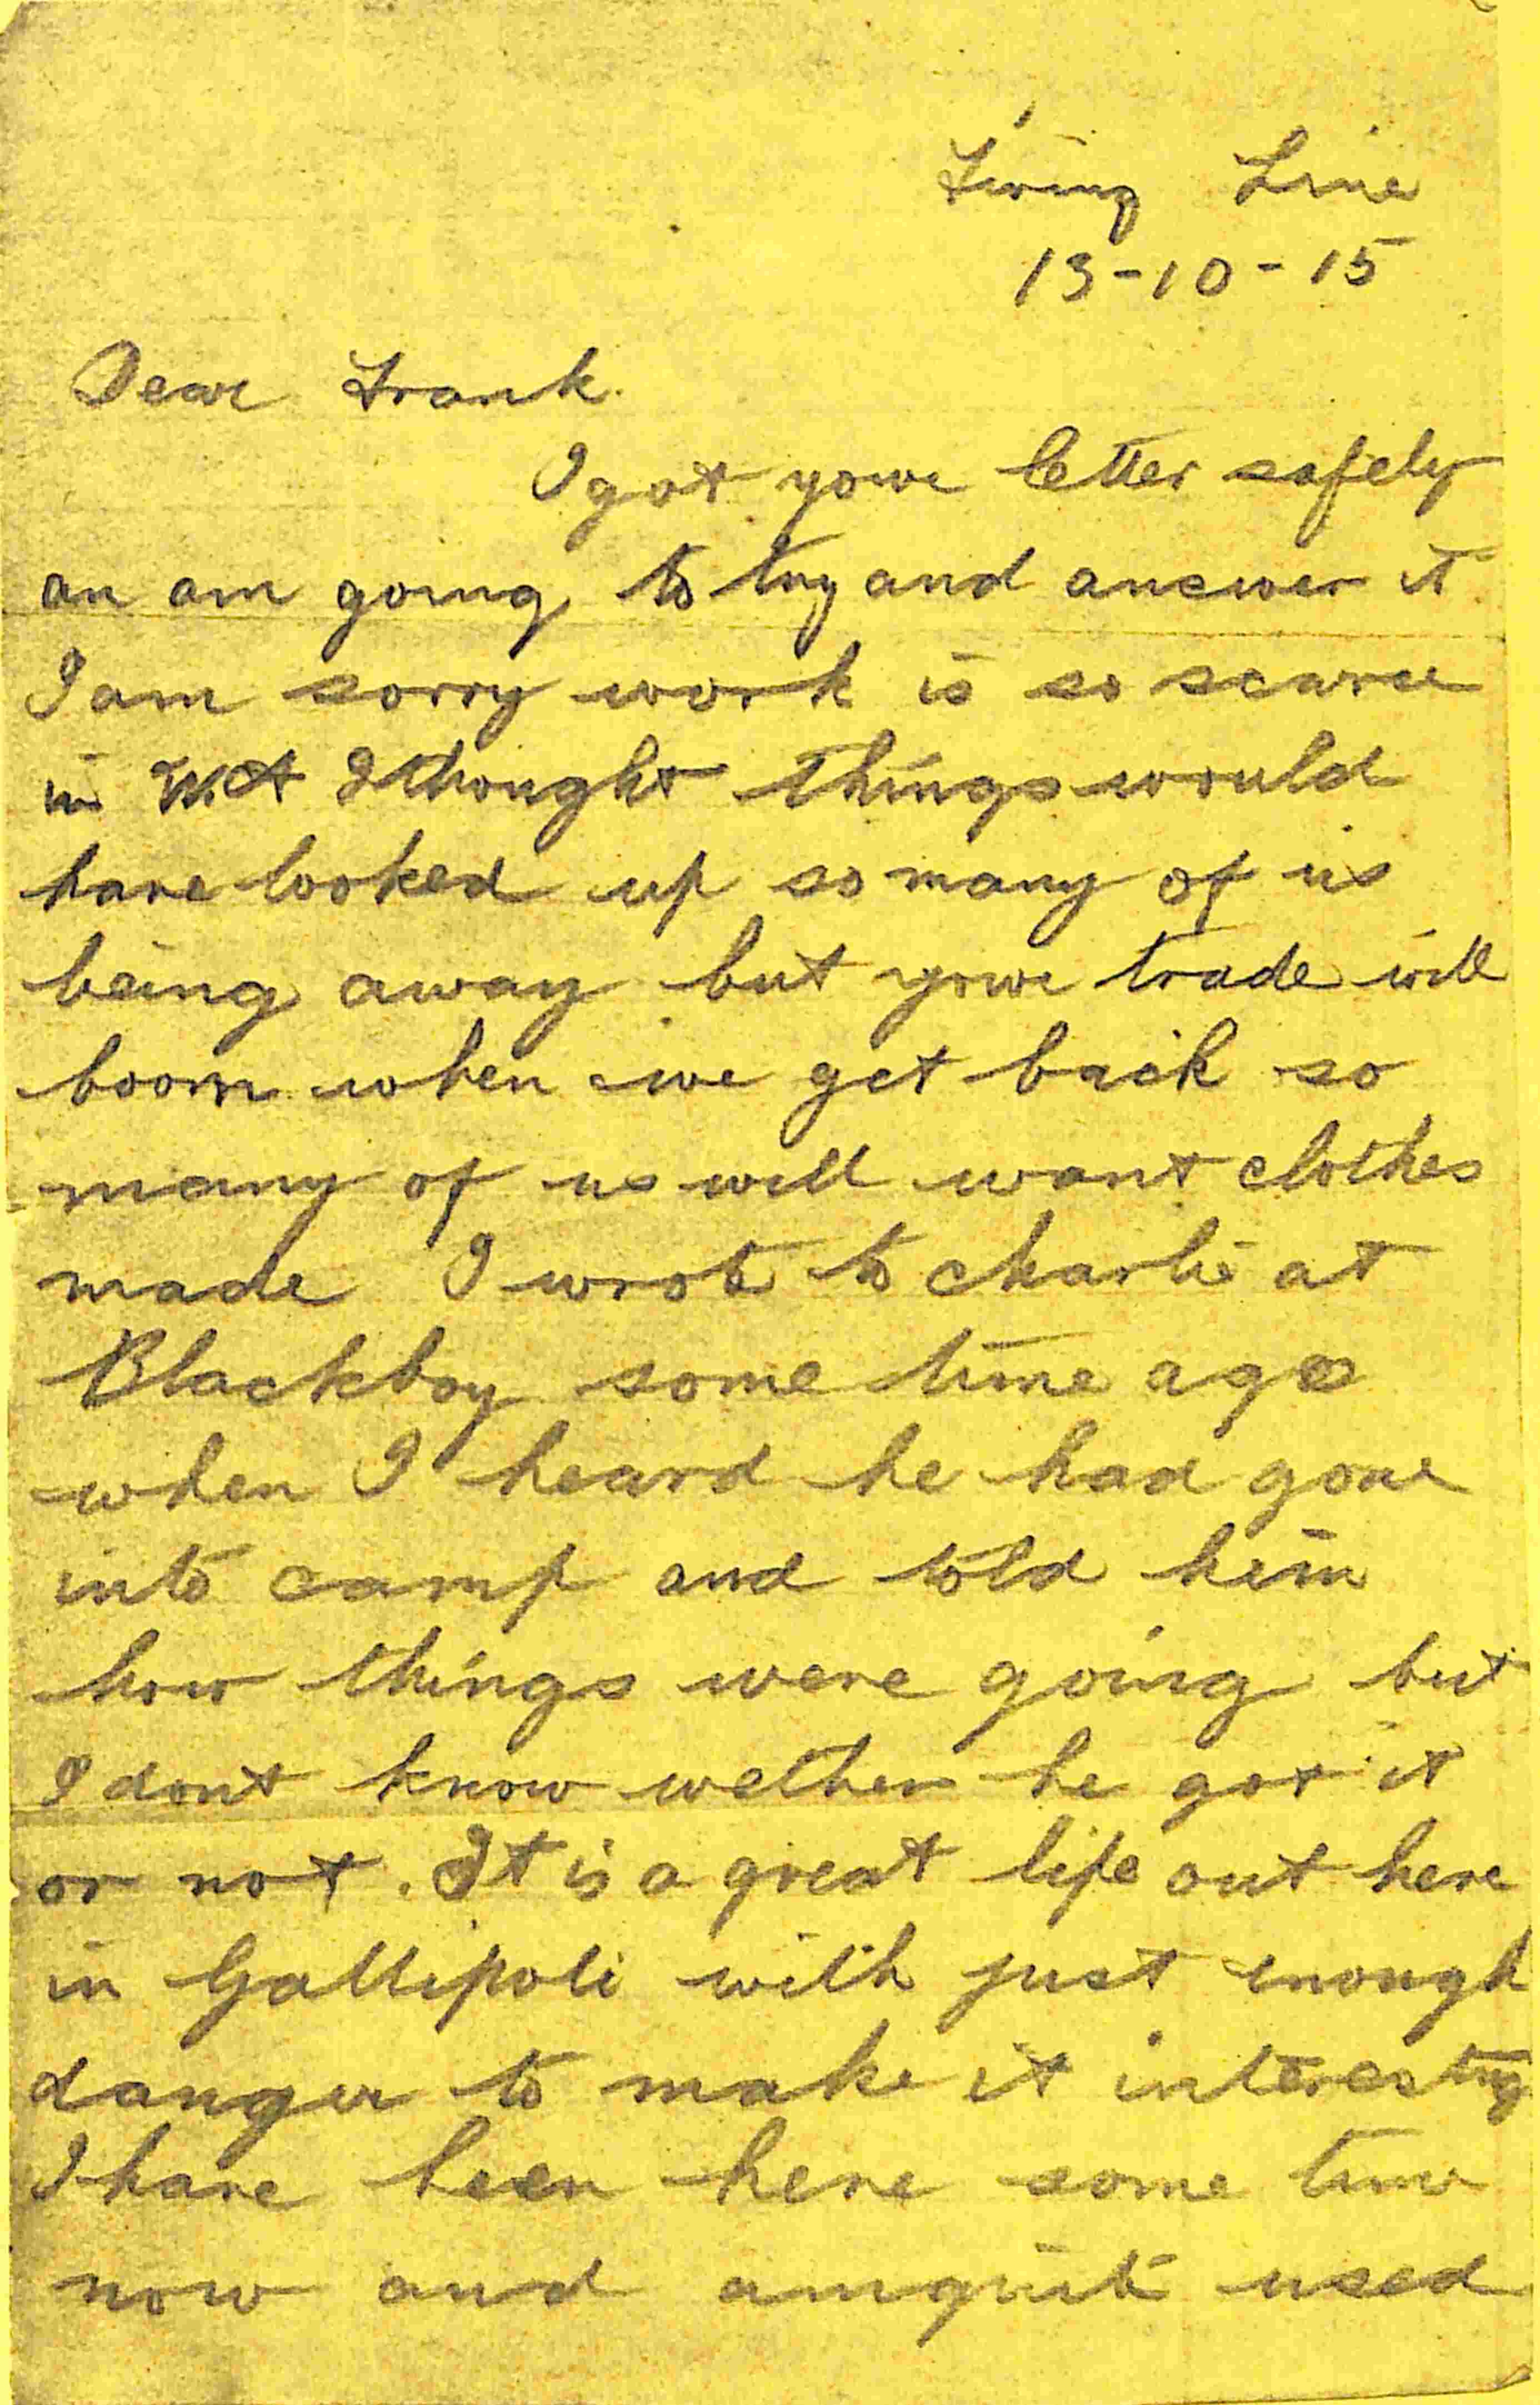 Firing Line
13-10-15
Dear Frank.
I got your letter safely
an am going to try and answer it
I am sorry work is so scarce
in W.A I thought things would
have looked up so many of us
being away but your trade will
boom when we get back so
many of us will want clothes
made I wrote to Charlie at
Blackboy some time ago
when I heard he had gone
into camp and told him
how things were going but
I dont know wether he got it
or not. It is a great life out here
in Gallipoli with just enough
danger to make it interesting
I have been here some time
now and am quite used